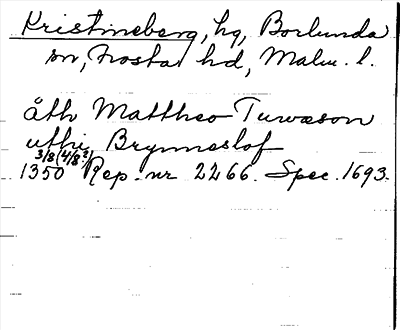 Kristineberg, hg, Borlunda
sn, Frosta hd, Malm. l.
åth Mattheo Tuvæson
uthi Brynneslof
3/8 (4/8?)
1350 Rep. nr 2266. Spec. 1693.